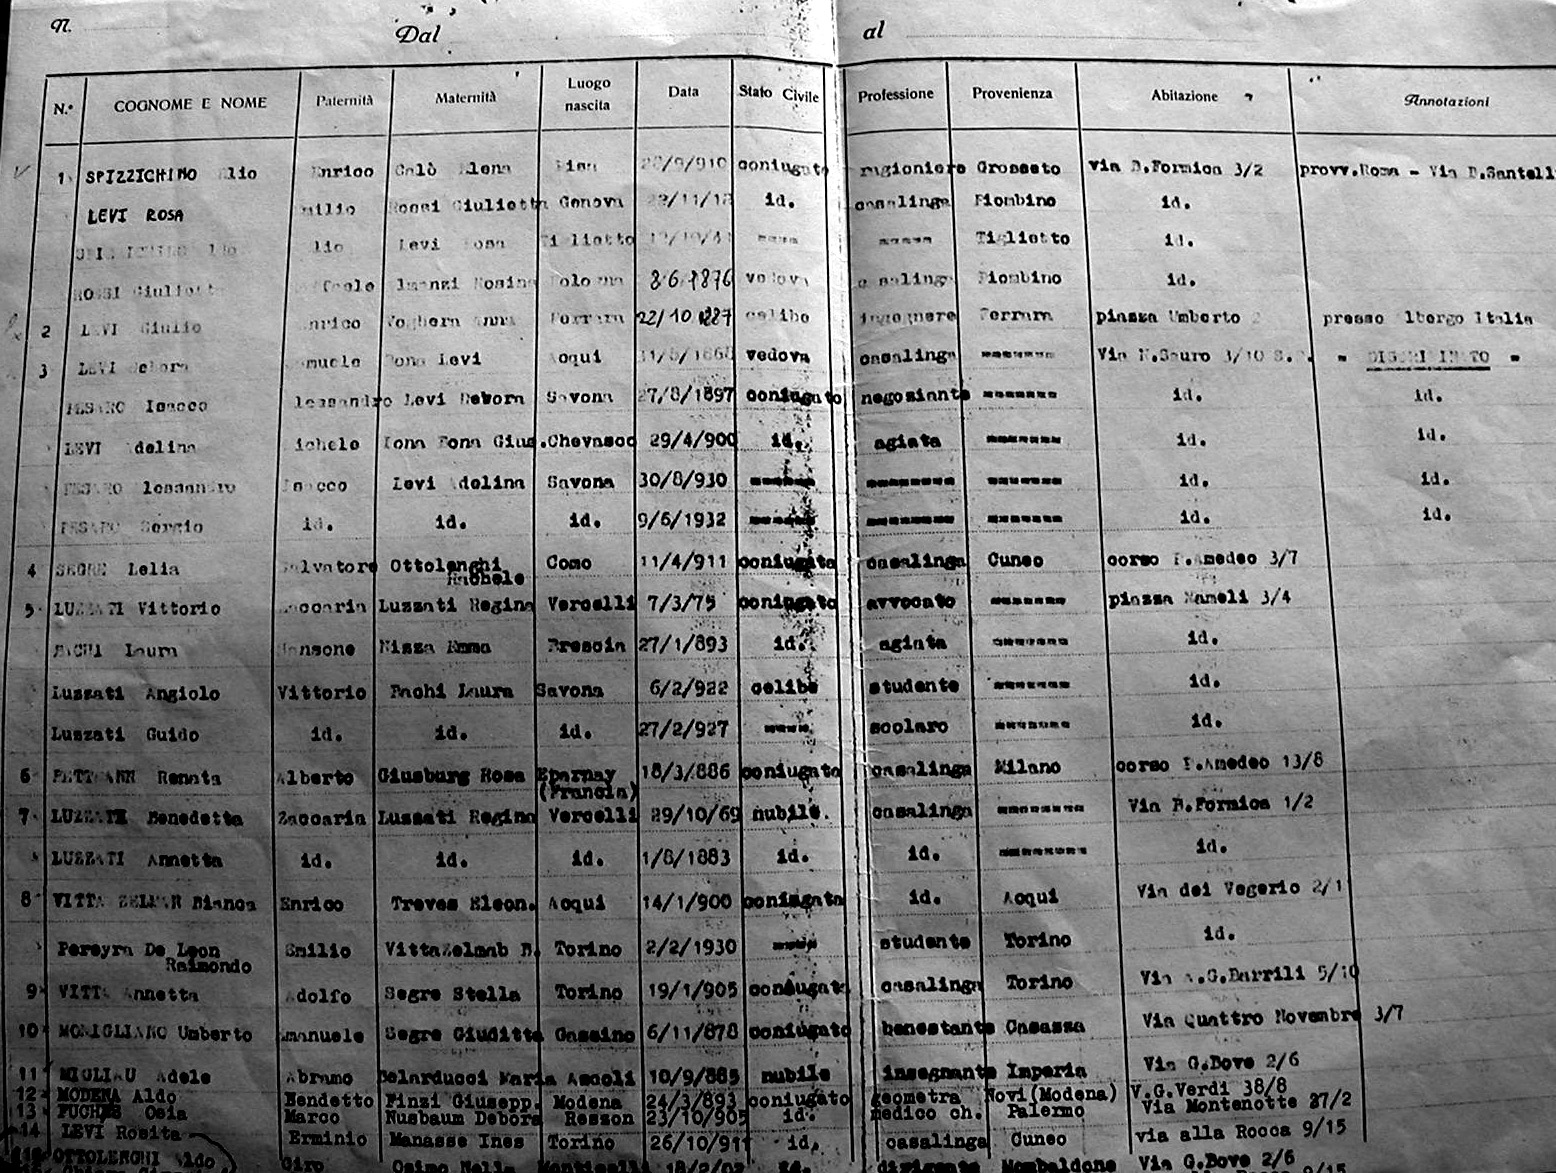 N. Dal al
N.° COGNOME E NOME Paternità Maternità Luogo nascita Data Stato Civile Professione Provenienza Abitazione Annotazioni
1 SPIZZICHINO Elio Enrico Calò Elena Pisa 910 coniugato ragioniere Grosseto via B.Formica 3/2 provv.Roma - Via
LEVI ROSA Rossi Giulietta Genova id. casalinga Piombino id.
Levi Rosa Tiglietto ---- ----- Tiglietto id.
ROSSI Giulietta Bologna 8-6-1876 vedova casalinga Piombino id.
2 LEVI Giulio Enrico Ferrara 22/10 887 celibe ingegnere Ferrara piazza Umberto presso Albergo Italia
3 LEVI Debora Bona Levi Acqui vedova casalinga ------- Via N.Sauro 3/10 " DISCRIMINATO "
PESARO Isacco Alessandro Levi Debora Savona 27/8/1897 coniugato negoziante ------- id. id.
LEVI Adelina Michele Chevasco 29/4/900 id. agiata ------- id. id.
PESARO Alessandro Isacco Levi Adelina Savona 30/8/930 ------ -------- ------- id. id.
PESARO Sergio id. id. id. 9/6/1932 ------ -------- ------- id. id.
4 SEGRE Lelia Salvatore Ottolenghi Rachele Como 11/4/911 coniugata casalinga Cuneo corso P.Amedeo 3/7
5 LUZZATI Vittorio Zaccaria Luzzati Regina Vercelli 7/3/75 coniugato avvocato ------- piazza Mameli 3/4
BACHI Laura Sansone Nizza Emma Brescia 27/1/893 id. agiata ------- id.
Luzzati Angiolo Vittorio Bachi Laura Savona 6/2/922 celibe studente ------- id.
Luzzati Guido id. id. id. 27/2/927 ---- scolaro ------- id.
6 Renata Alberto Giusburg Rosa Eparnay (Francia) 18/3/886 coniugata casalinga Milano corso P.Amedeo 13/8
7 LUZZATI Benedetta Zaccaria Luzzati Regina Vercelli 29/10/69 nubile. casalinga -------- Via B.Formica 1/2
LUZZATI Annetta id. id. id. 1/8/1883 id. id. -------- id.
8 VITTA ZELMAN Bianca Enrico Treves Eleon. Acqui 14/1/900 coniugata id. Acqui Via dei Vegerio 2/1
Pereyra De Leon Raimondo Emilio VittaZelmab B. Torino 2/2/1930 ---- studente Torino id.
9 VITTA Annetta Adolfo Segre Stella Torino 19/1/905 coniugata casalinga Torino Via A.G.Barrili 5/10
10 MOMIGLIANO Umberto Emanuele Segre Giuditta Gassino 6/11/878 coniugato benestante Casazza Via Quattro Novembre 3/7
11 MIGLIAU Adele Abramo Belarducci Maria Ascoli 10/9/885 nubile insegnante Imperia Via G.Bove 2/6
12 MODENA Aldo Bendetto Finzi Giusepp. Modena 24/3/893 coniugato geometra Novi(Modena) V.G.Verdi 38/8
13 FUCHES Osia Marco Nusbaum Debora Reszon 23/10/905 id. medico ch. Palermo Via Montenotte 27/2
14 LEVI Rosita Erminio Manasse Ines Torino 26/10/911 id. casalinga Cuneo via alla Rocca 9/15
OTTOLENGHI Aldo Ciro Osimo Nella 18/2/02 id. dirigente Mombaldone Via G.Bove 2/6